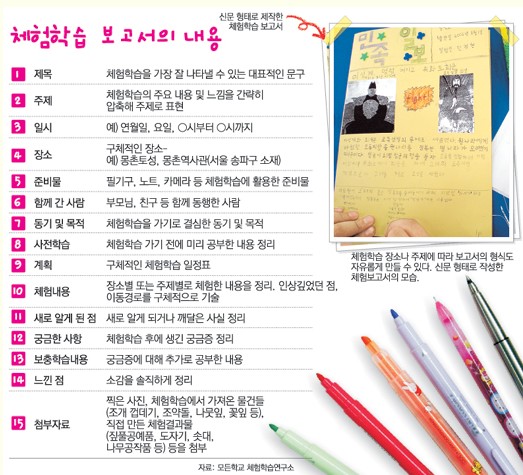 체험학습 보고서의 내용
신문 형태로 제작한
체험학습 보고서
1 제목 체험학습을 가장 잘 나타낼 수 있는 대표적인 문구
2 주제 체험학습의 주요 내용 및 느낌을 간략히
압축해 주제로 표현
3 일시 예) 연월일, 요일, ○시부터 ○시까지
4 장소 구체적인 장소-
예) 몽촌토성, 몽촌역사관(서울 송파구 소재)
5 준비물 필기구, 노트, 카메라 등 체험학습에 활용한 준비물
6 함께 간 사람 부모님, 친구 등 함께 동행한 사람
7 동기 및 목적 체험학습을 가기로 결심한 동기 및 목적
8 사전학습 체험학습 가기 전에 미리 공부한 내용 정리
9 계획 구체적인 체험학습 일정표
10 체험내용 장소별 또는 주제별로 체험한 내용을 정리. 인상깊었던 점,
이동경로를 구체적으로 기술
11 새로 알게 된 점 새로 알게 되거나 깨달은 사실 정리
12 궁금한 사항 체험학습 후에 생긴 궁금증 정리
13 보충학습내용 궁금증에 대해 추가로 공부한 내용
14 느낀 점 소감을 솔직하게 정리
15 첨부자료 찍은 사진, 체험학습에서 가져온 물건들
(조개 껍데기, 조약돌, 나뭇잎, 꽃잎 등),
직접 만든 체험결과물
(짚풀공예품, 도자기, 솟대,
나무공작품 등) 등을 첨부
자료: 모든학교 체험학습연구소
민족일보
체험학습 장소나 주제에 따라 보고서의 형식도
자유롭게 만들 수 있다. 신문 형태로 작성한
체험보고서의 모습.